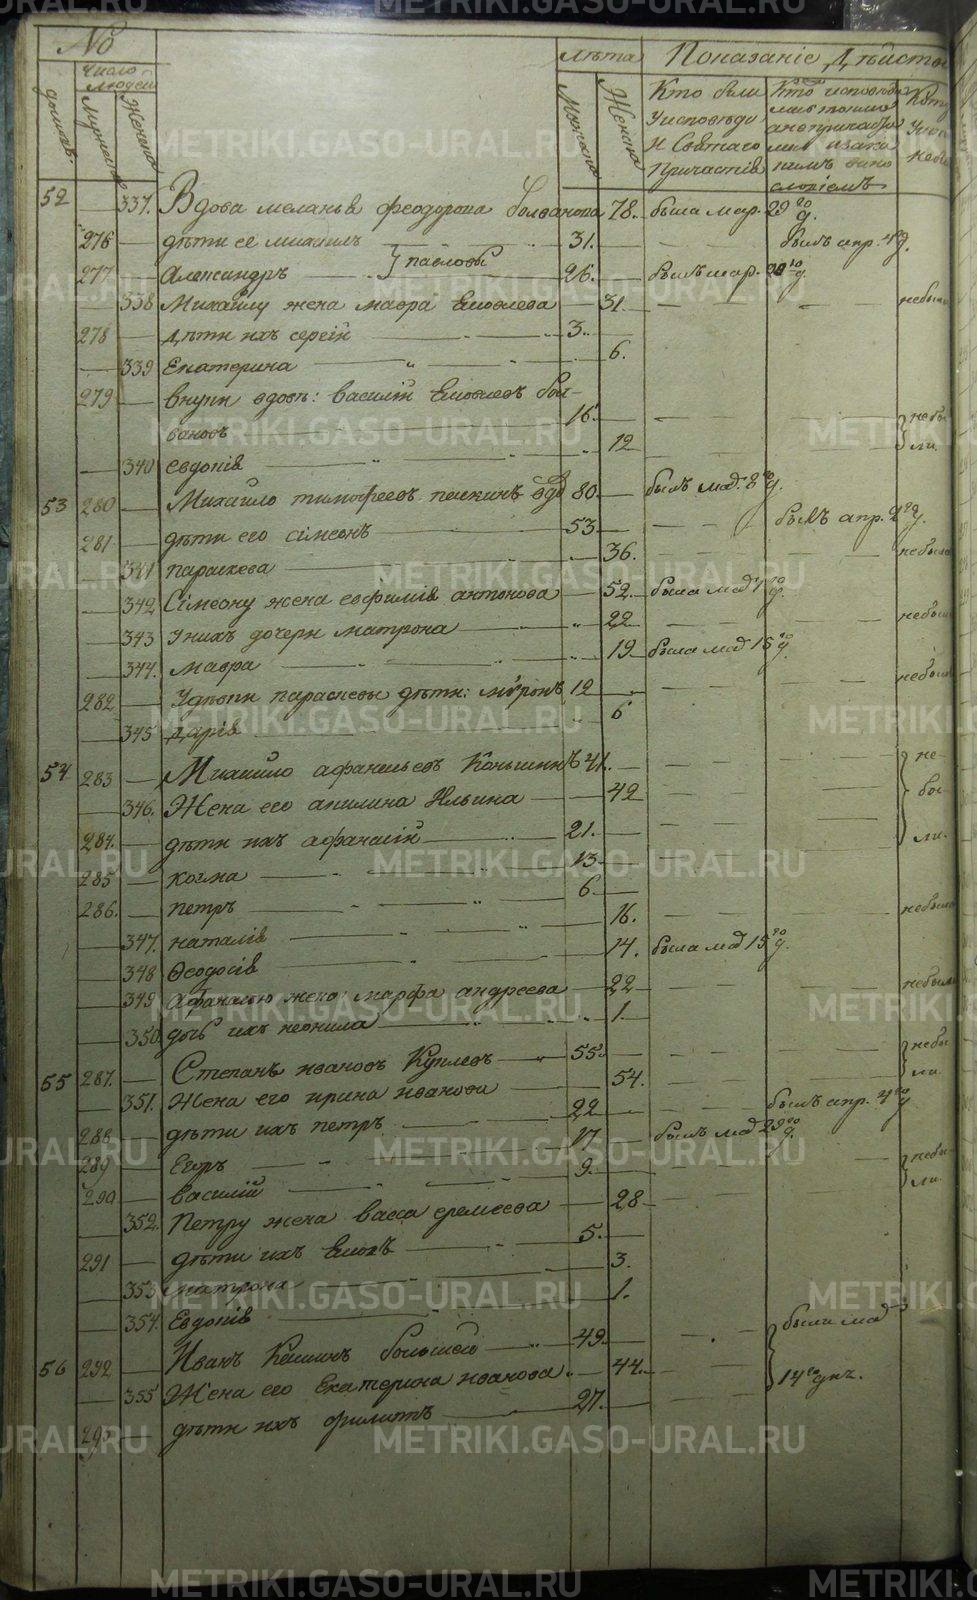 №
Число людей
Лѣта
Показаніе Дѣйств
домовъ.
Мужеска
Женска
Мужска
Женска
Кто были
Уисповѣди
И Святаго
Причастія
Кто исповѣда
лись токмо
анепричасти
лись
52 337. Вдова меланья феодорова болванова 78. была мар. 29го д.
276 дѣти ее михаилъ 31. былъ апр. 4 д.
277 Александръ } павловы 26. былъ мар.
338 Михаилу жена мавра Яковлева 31. небыла
278 дѣти ихъ сергій 3.
339 Екатерина 6.
279 внуки вдовы: василій Яковлевъ бол-
вановъ 16. { небы
340 евдокія 12 ли.
53 280 Михайло тимофеевъ пешкинъ вдо 80. былъ мая 8го д.
281 дѣти его сімеонъ 53 былъ апр. д.
341 параскева 36. небыла
342 Сімеону жена евфимія антонова 52. была мая д.
343 Унихъ дочери матрона 22 небыла
344. мавра 19 была мая 15го д.
282 Удѣвки параскевы дѣти: миронъ 12 небыли
345 дарія 6
54 283 Михайло афанасьевъ Коньшинъ 41. не-
346. Жена его акилина Ильина 42 бы-
284. дѣти ихъ афанасій 21. ли.
285 козма 13
286. петръ 6
347. наталія 16. небыла
348 Ѳеодосія 14. была мая 15го д.
349 Афанасью жена марфа андреева 22 небыла
350. дочь ихъ неонила 1.
55 287. Степанъ ивановъ Куклевъ 55. { небы
351. Жена его ирина иванова 54. ли.
288 дѣти ихъ петръ 22 былъ апр. 4го д
289 Егоръ 17 былъ мая 29го д.
290 василій 9. { небы-
352. Петру жена васса еремеева 28 ли.
291 дѣти ихъ Яковъ 5.
353 матрона 3.
354. Евдокія 1.
56 292 Иванъ большей 49. были мая
355 Жена его Екатерина иванова 44. 14го дня.
293 дѣти ихъ филипъ 27.
METRIKI.GASO-URAL.RU